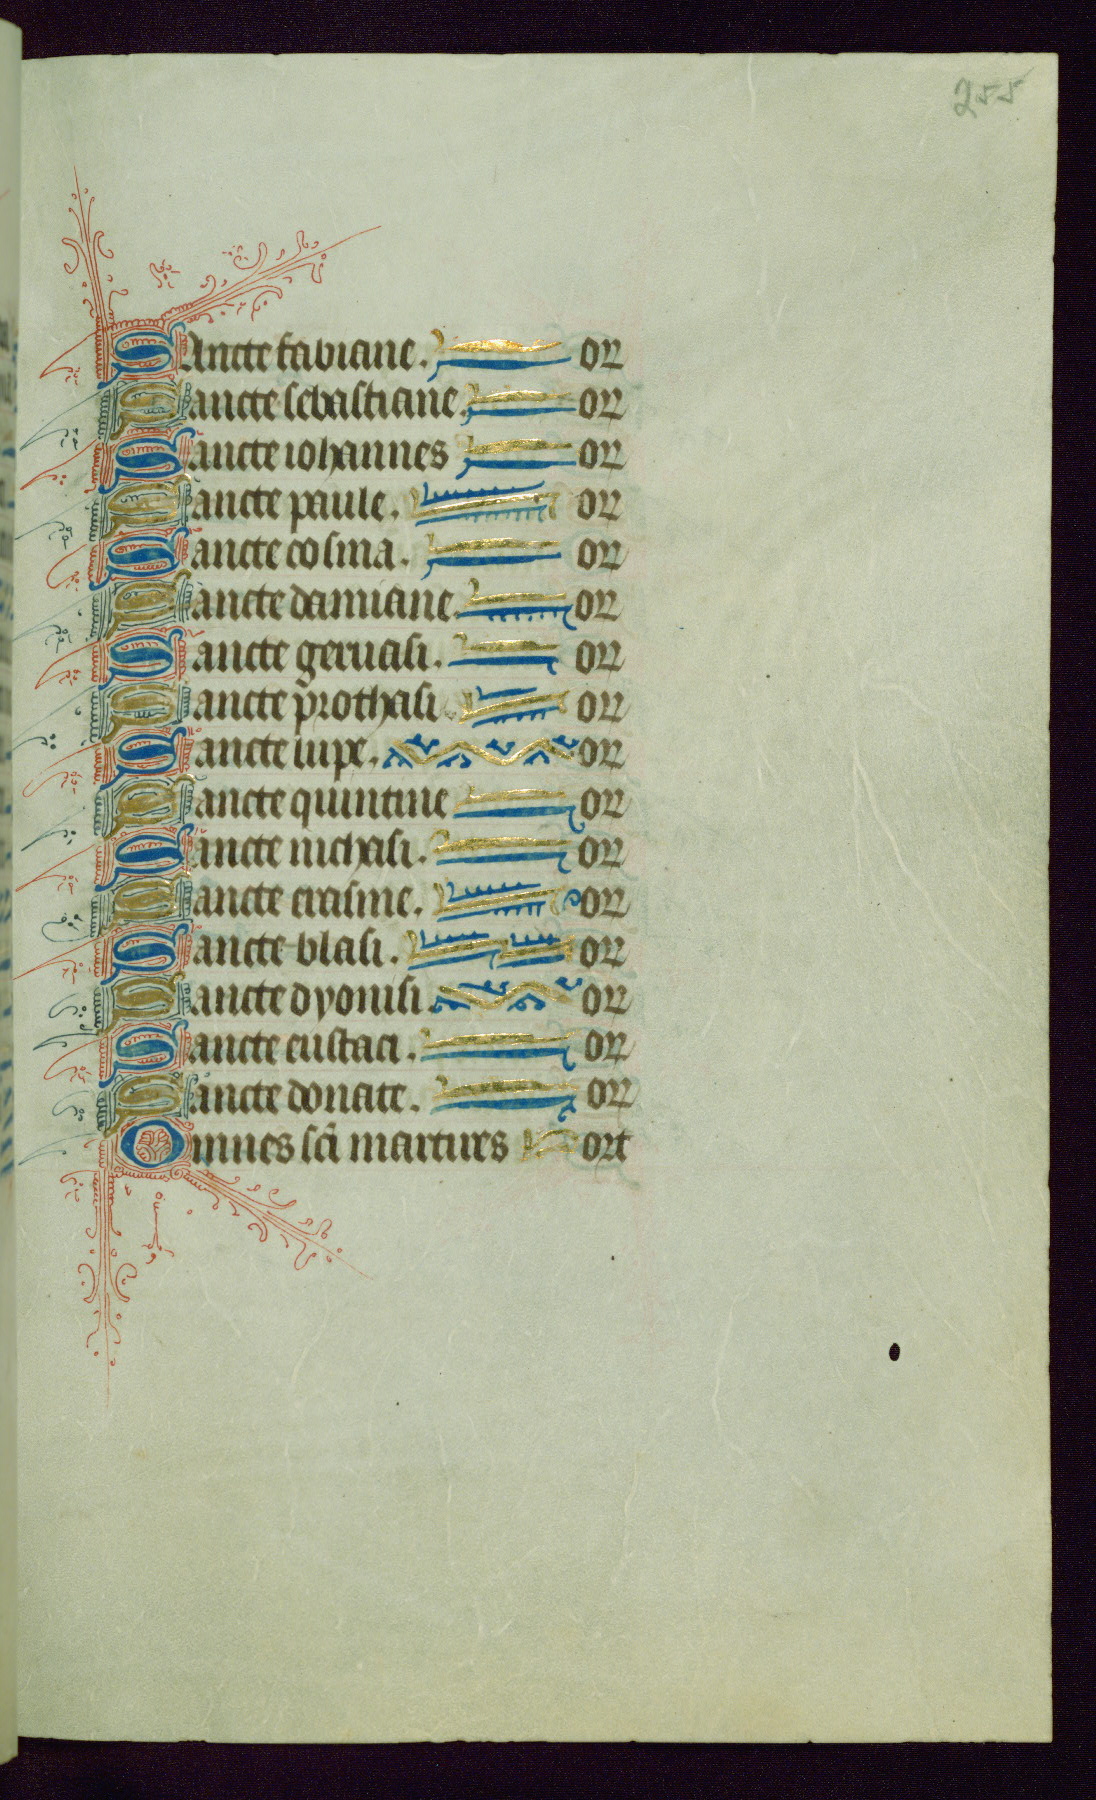 255
Sancte fabiane. or
Sancte sebastiane. or
Sancte iohannes or
Sancte paule. or
Sancte cosma. or
Sancte damiane. or
Sancte geruasi. or
Sancte prothasi. or
Sancte lupe. or
Sancte quintine or
Sancte nichasi. or
Sancte erasme. or
Sancte blasi. or
Sancte dyonisi. or
Sancte eustaci. or
Sancte donate. or
Omnes sci martires ort